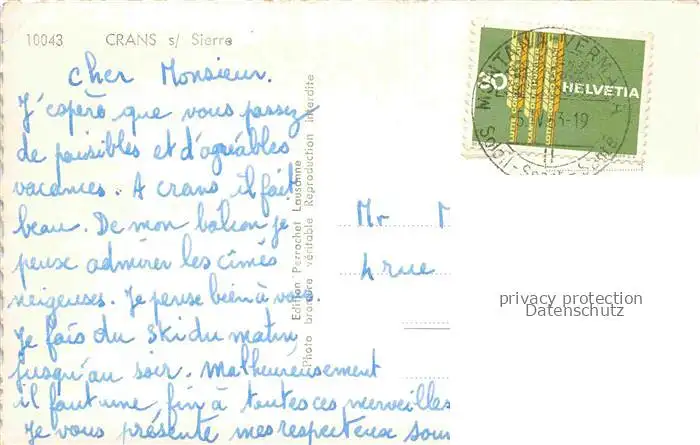 10043 CRANS s/ Sierre
cher Monsieur.
J'espère que vous passez
de paisibles et d'agréables
vacances. A crans il fait
beau. De mon balcon je
peux admirer les cîmes
neigeuses. Je pense bien à vous.
Je fais du ski du matin
jusqu'au soir. Malheureusement
il faut une fin à toutes ces merveilles
Je vous présente mes respectueux
Edition Perrochet Lausanne
Photo bromure véritable Reproduction interdite
Mr
4 rue
HELVETIA
MONTANA-VERMALA
63-19
Soleil-Sport-Santé
privacy protection
Datenschutz